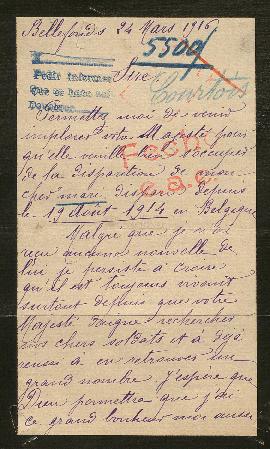 Bellefonds 24 Mars 1916
5500
Petit Informe
Sire
Courtois
Permettez moi de venir
implorer votre Majesté pour
qu'elle veuille bien s'occuper
de la disparition de mon
cher mari disparu depuis
le 19 Aout 1914 en Belgique
Malgré que je n'ai
reçu aucune nouvelle de
lui je persiste à croire
qu'il est toujours vivant
surtout depuis que votre
Majesté daigne rechercher
nos chers soldats et a déjà
réussi à en retrouver un
grand nombre j'espère que
Dieu permettra que j'ai
ce grand bonheur moi aussi